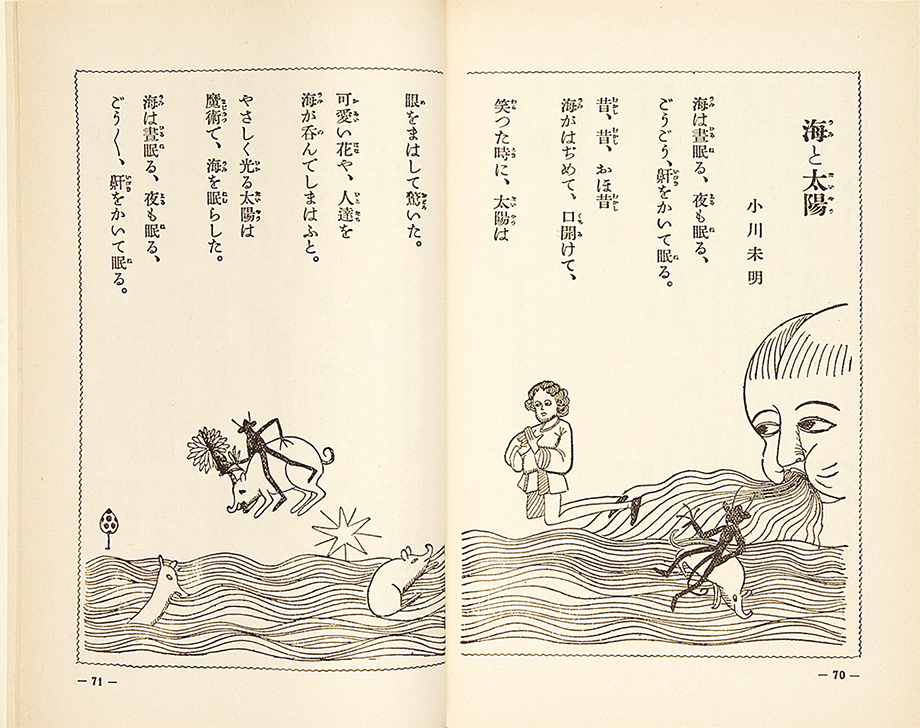 海と太陽
小川未明
海は晝眠る、夜も眠る、
ごうごう、鼾をかいて眠る。
昔、昔、おほ昔
海がはぢめて、口開けて、
笑つた時に、太陽は
眼をまはして驚いた。
可愛い花や、人達を
海が呑んてしまはふと。
やさしく光る太陽は
魔術て、海を眠らした。
海は晝眠る、夜も眠る、
ごう〱、鼾をかいて眠る。
— 70 —
— 71 —